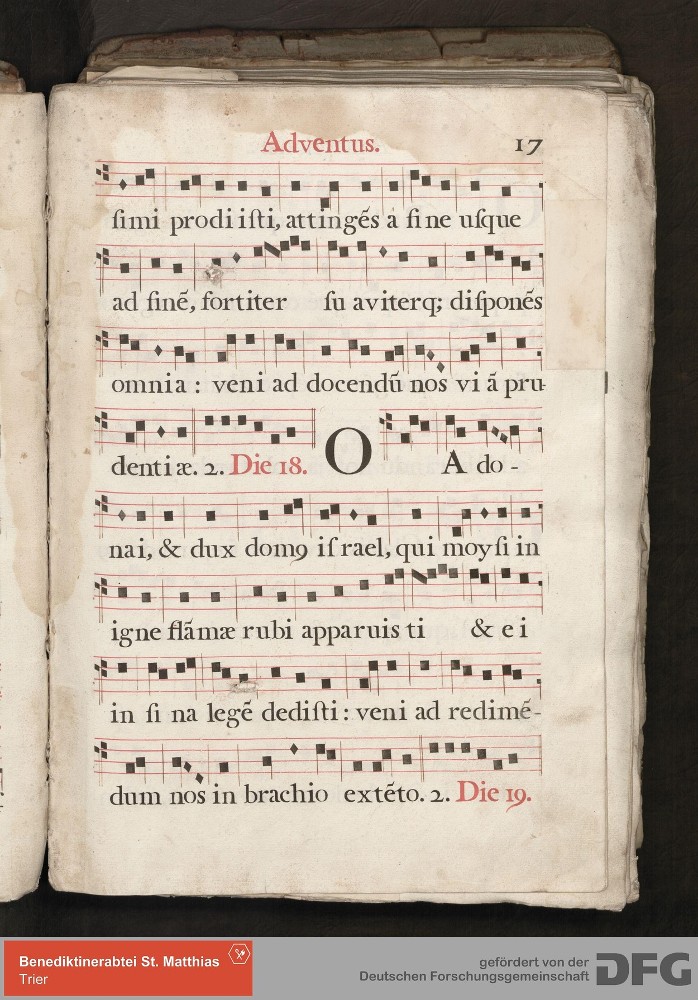 Adventus. 17
ſimi prodi iſti, attingēs a fi ne uſque
ad finē, fortiter ſu aviterq; diſponēs
omnia : veni ad docendū nos vi ā pru-
denti æ. 2. Die 18. O A do -
nai, & dux domꝯ iſ rael, qui moyſi in
igne flāmæ rubi apparuis ti & e i
in ſi na legē dediſti : veni ad redimē-
dum nos in brachio extēto. 2. Die 19.
Benediktinerabtei St. Matthias
Trier
gefördert von der
Deutschen Forschungsgemeinschaft
DFG